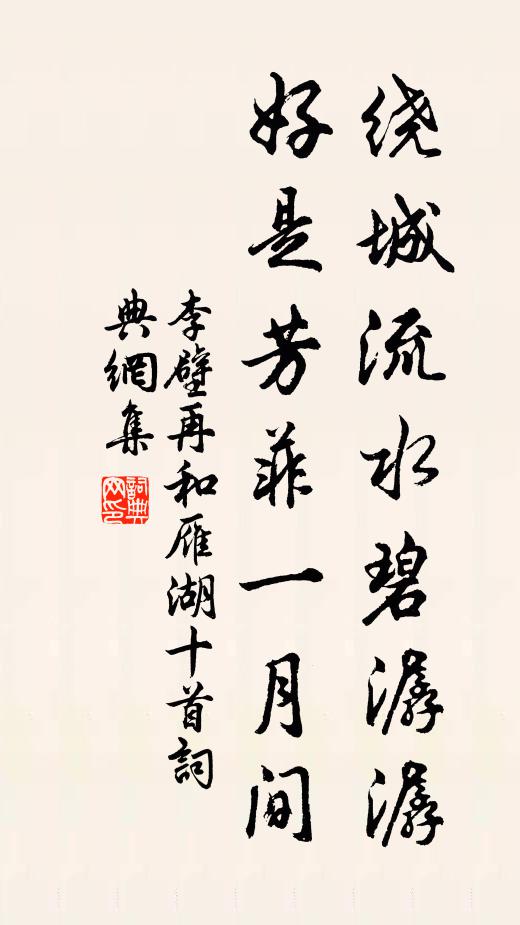 绕城流水碧潺潺
好是芳菲一月间
李壁再和雁湖十首詞
典網集
詞典网印